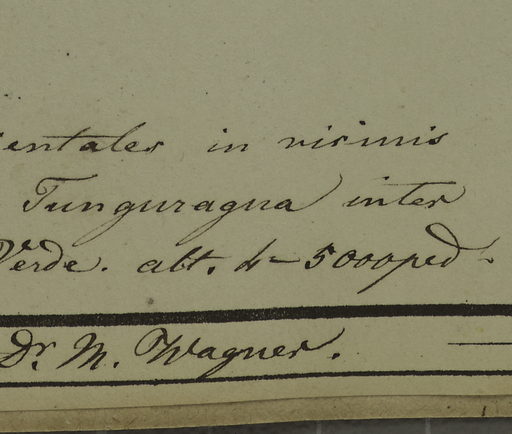 ientales in vicinis
Tunguragua inter
Verde. alt. 4-5000 ped.
Dr. M. Wagner.